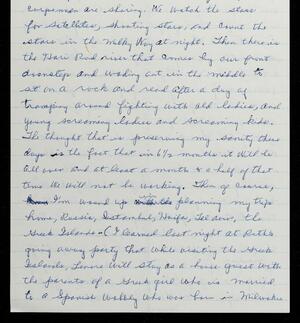 corpsmen are sharing. We watch the stars
for satellites, shooting stars, and count the
stars in the Milky Way at night. Then there is
the Hari Rud river that comes by our front
doorstep and wading out in the middle to
sit on a rock and read after a day of
tramping around fighting with old ladies, and
young screaming ladies and screaming kids.
The thought that is preserving my sanity these
days is the fact that in 6½ months it will be
all over and at least a month & a half of that
time we will not be working. Then of course,
I'm wound up in planning my trip
home, Russia, Istanbul, Haifa, Tel Aviv, the
Greek Islands - (I learned last night at Ruth's
going away party that while visiting the Greek
Islands, Lenore will stay as a house guest with
the parents of a Greek girl who is married
to a Spanish Wallaby who was born in Milwaukee.